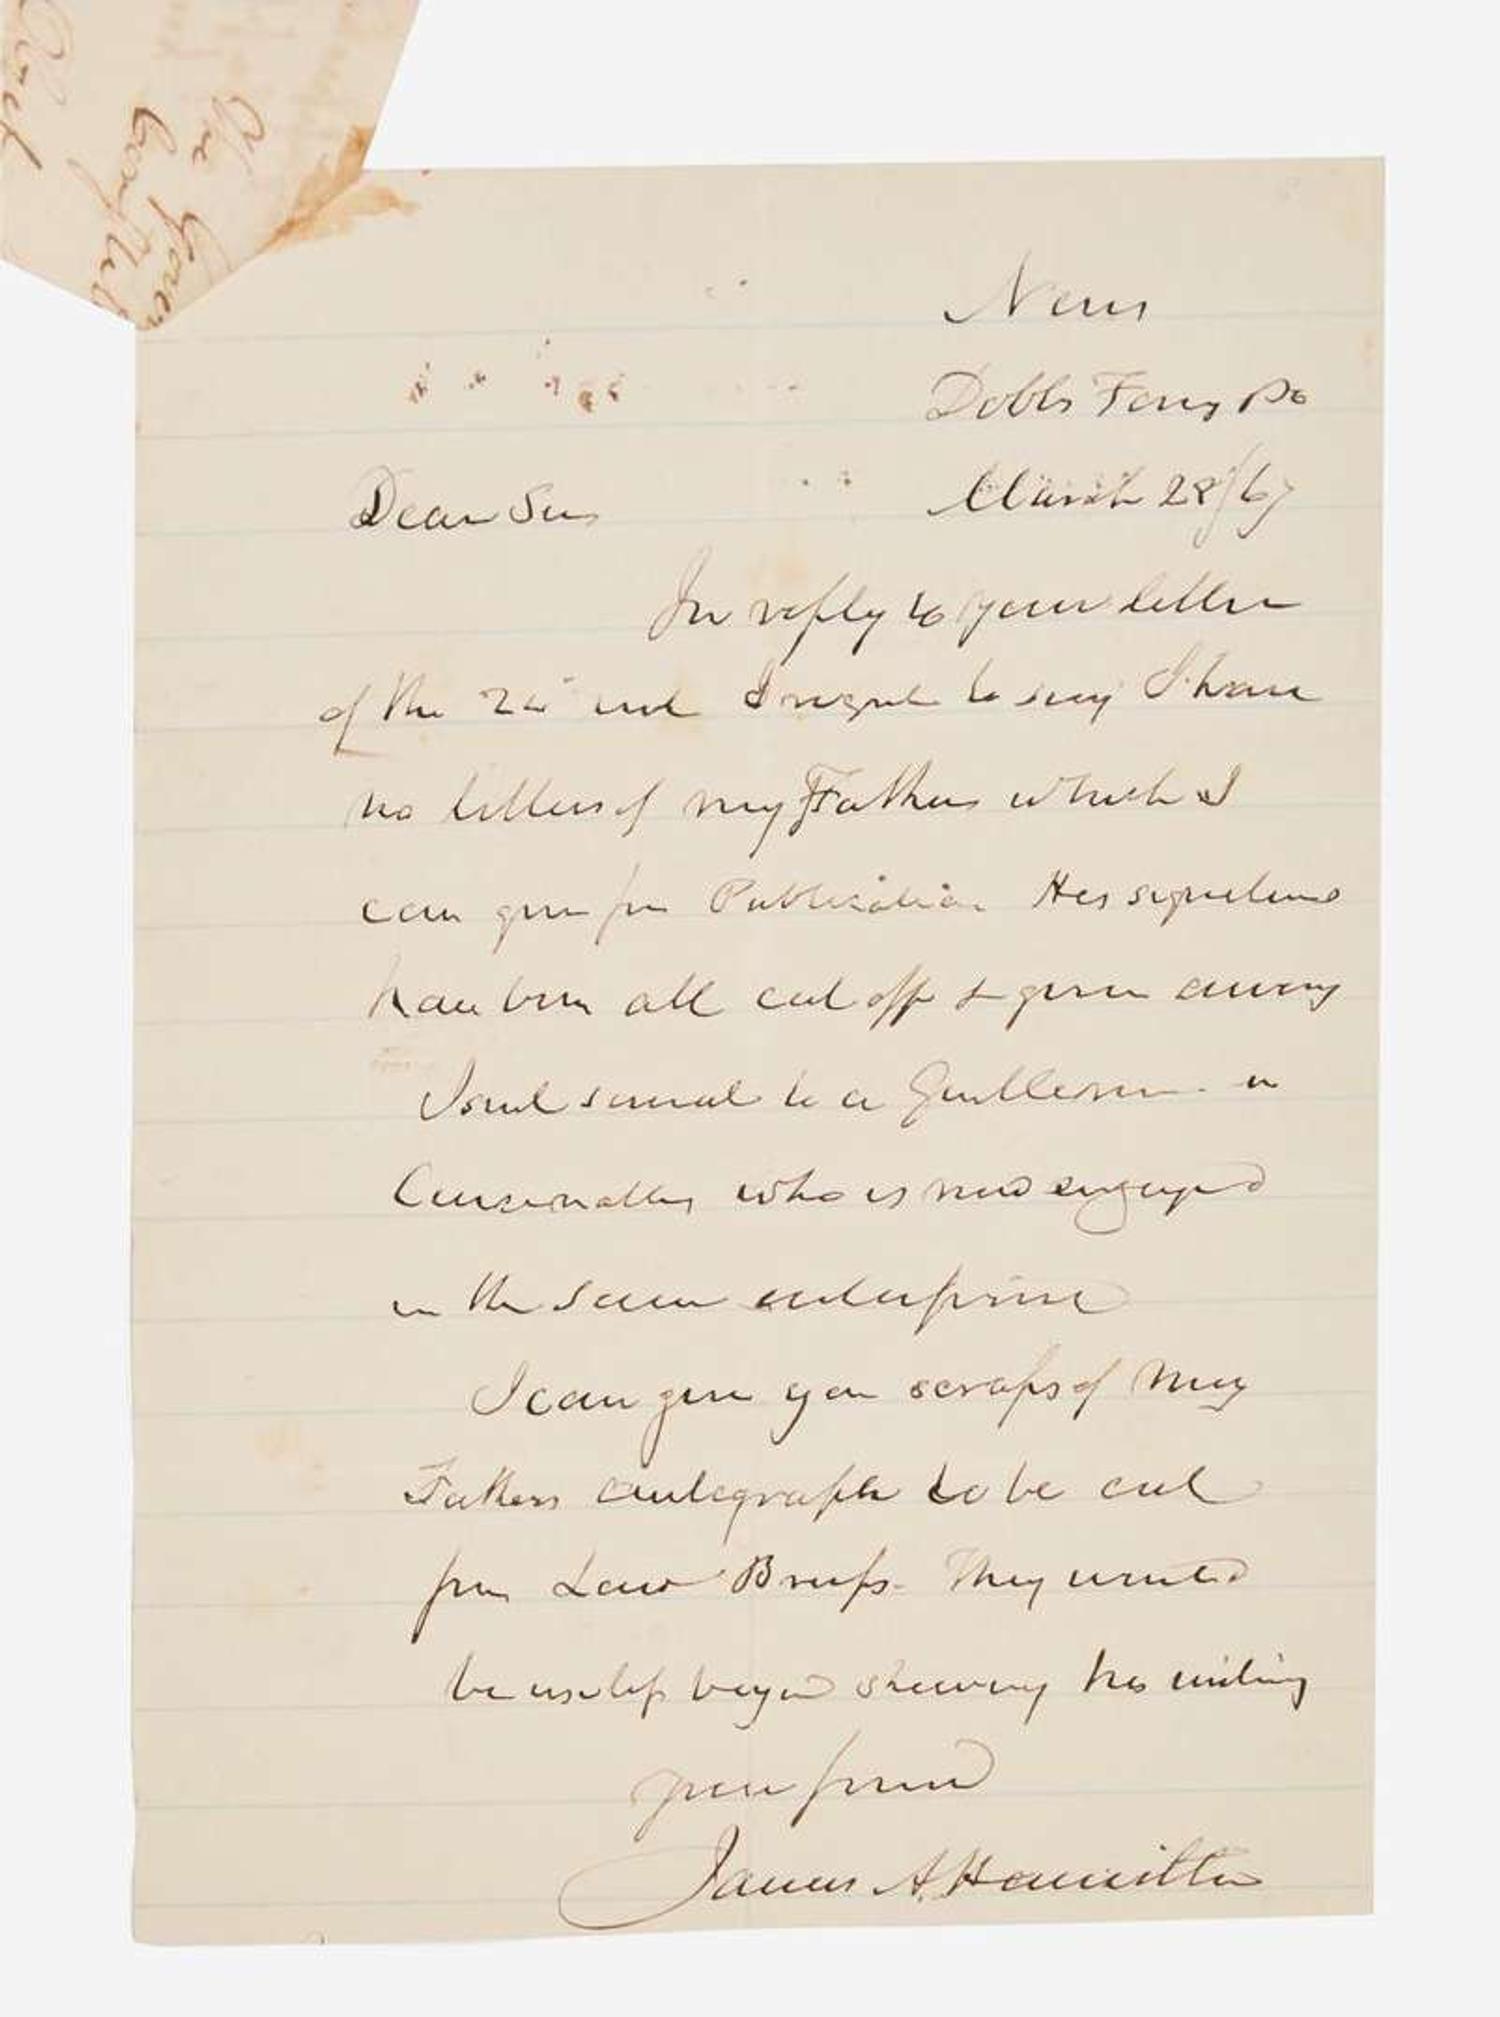 the
Nevis
Dobbs Ferry Po
March 28/67
Dear Sir
In reply to your letter
of the inst I regret to say I have
no letters of my Fathers which I
can give for Publication His signatures
have been all cut off & given away
I sent several to a Gentleman in
Cincinnati who is now engaged
in the same enterprise
I can give you scraps of my
Fathers autograph to be cut
from Law Briefs. They would
be useless beyond shewing his writing
your friend
James A. Hamilton